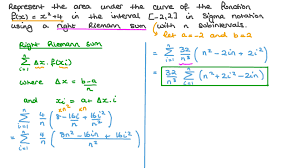 Represent the area under the curve of the function
f(x) = x²+4 in the interval [-2,2] in Sigma notation
using a right Riemann sum with n subintervals.
let a=-2 and b=2
Right Riemann Sum
n
Σ Δx · f(xᵢ)
i=1
where Δx = b-a/n
and xᵢ = a + Δx · i
= Σ 4/n (8 - 16i/n + 16i²/n²)
= Σ 4/n (8n² - 16in + 16i²/n²)
= Σ 32/n³ (n² - 2in + 2i²)
= 32/n³ Σ (n² + 2i² - 2in)